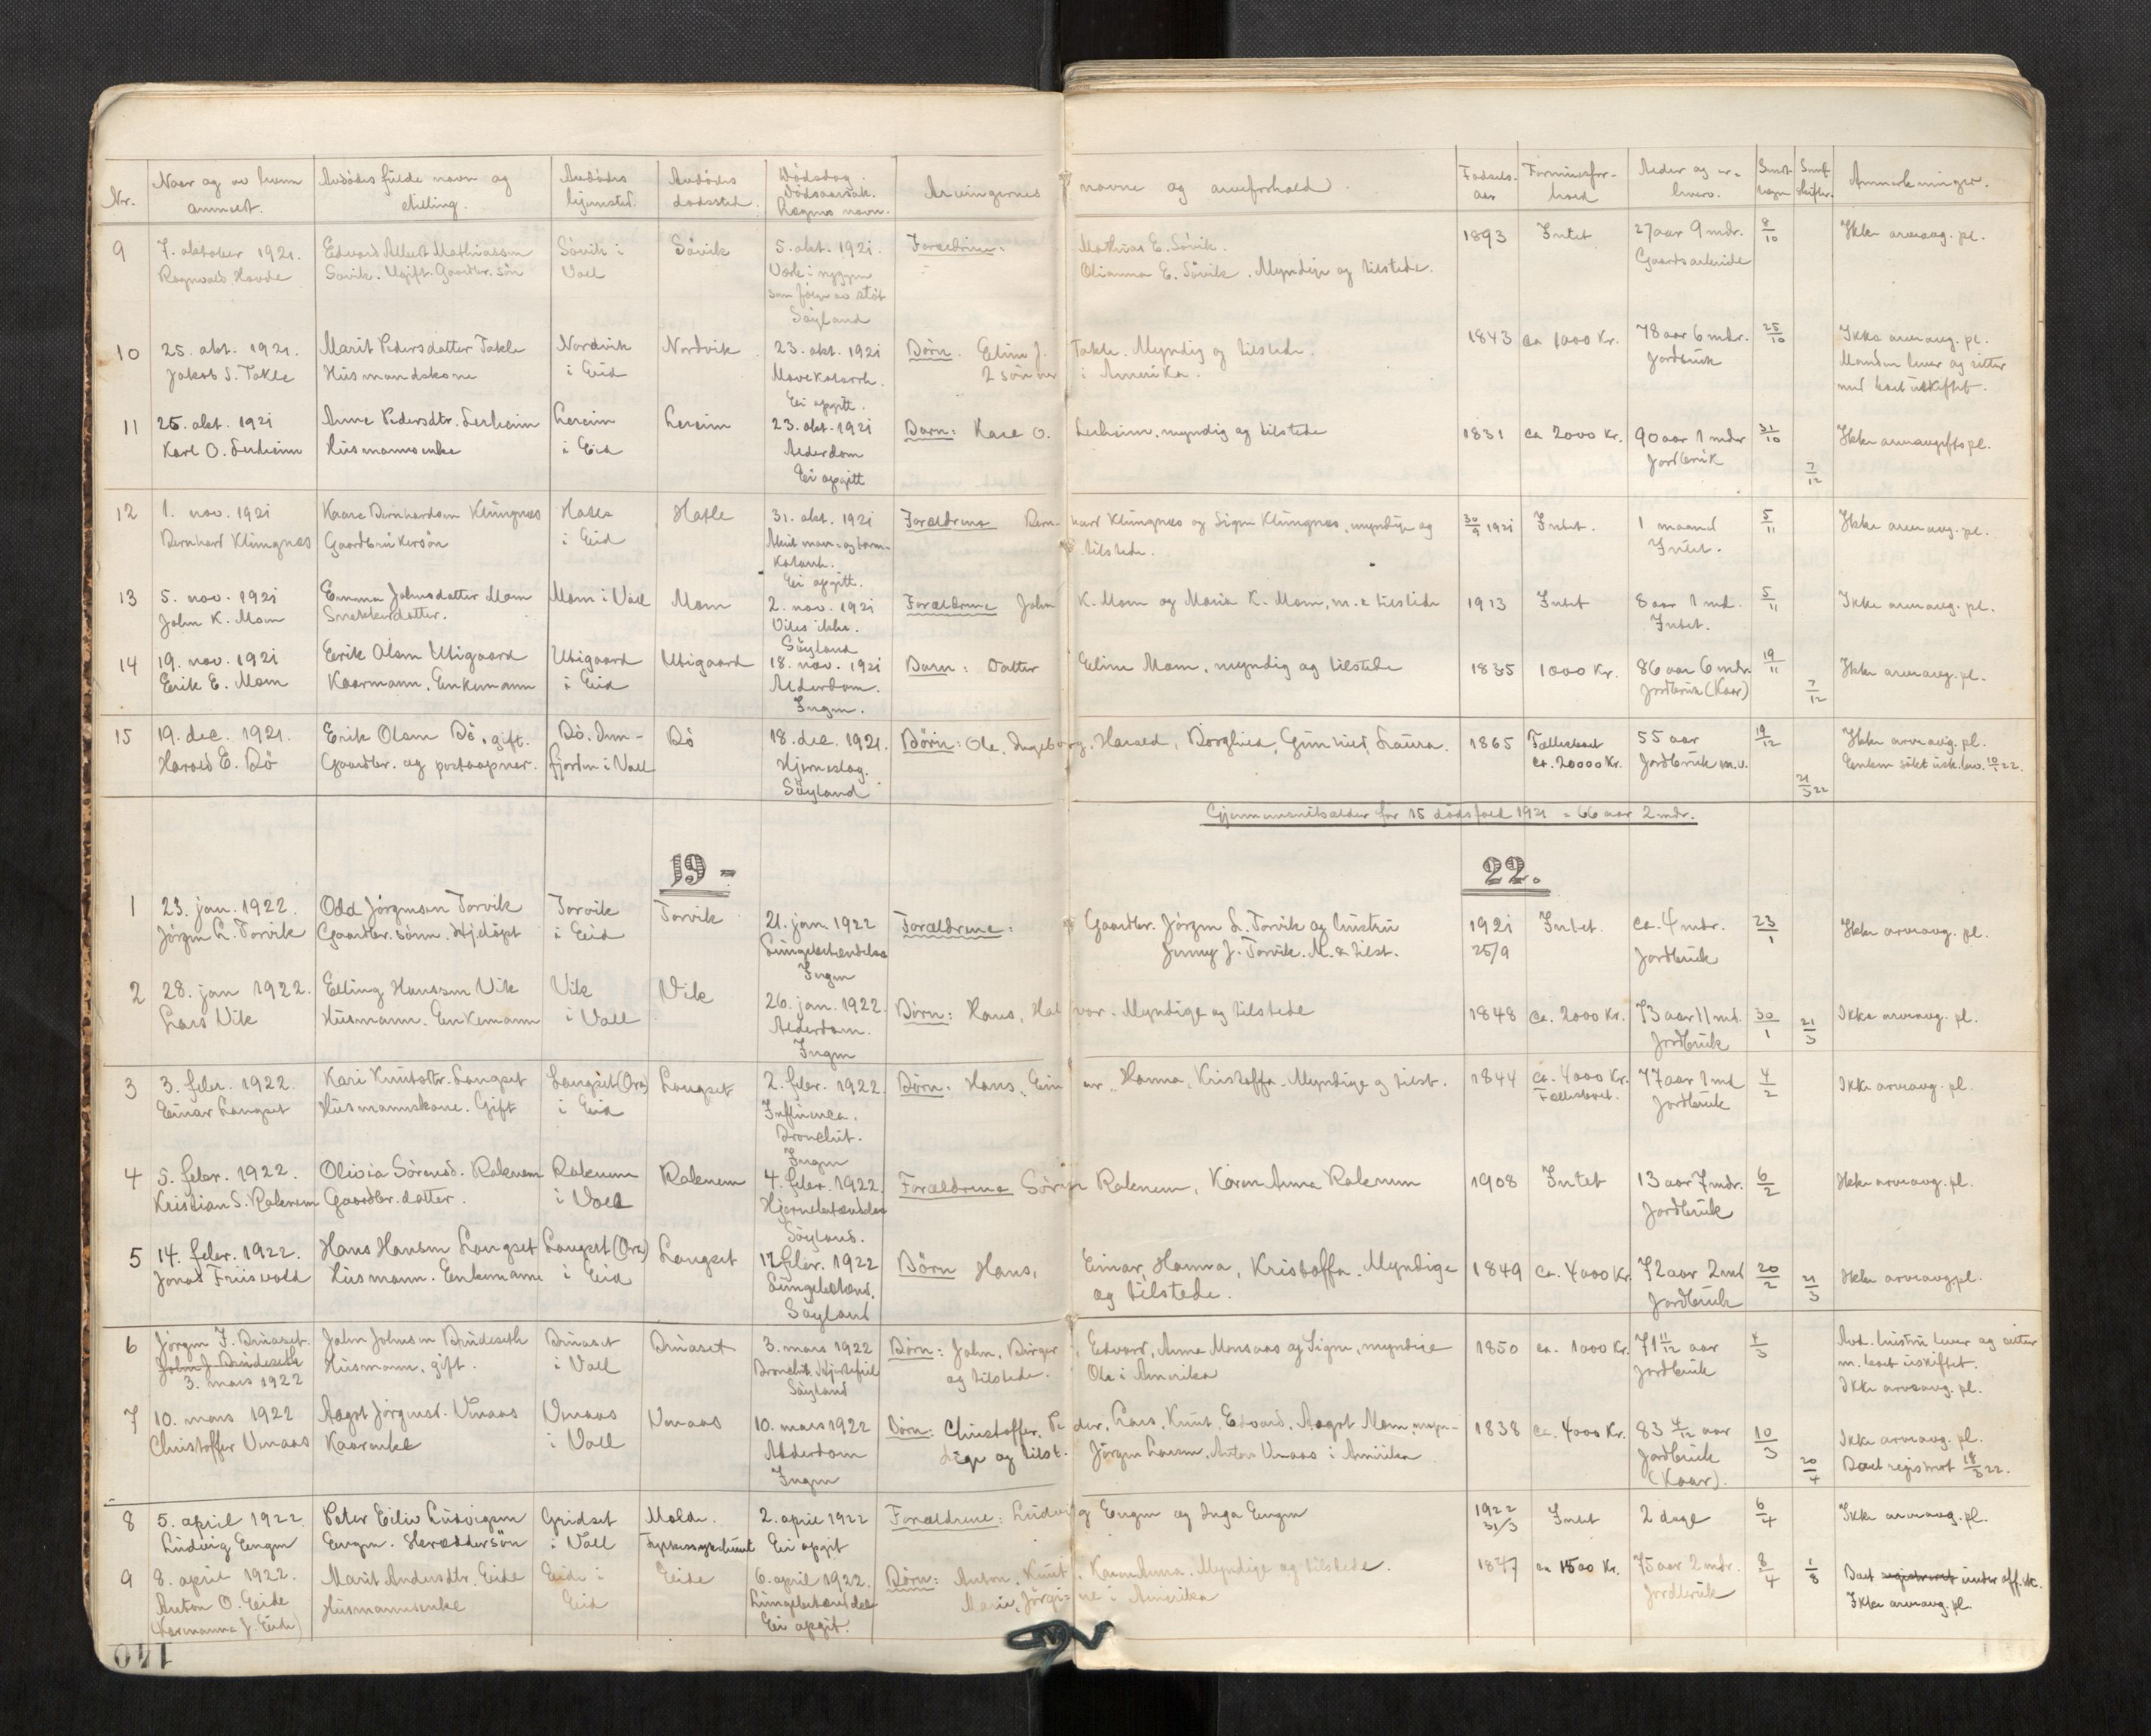 Nr.
Naar og av hvem anmeldt.
Avdødes fulde navn og stilling.
Avdødes hjemsted.
Avdødes dødssted.
Dødsdag. Dødsaarsak. Lægens navn.
Arvingernes navne og arveforhold.
Fødsels-aar
Formuesfor-hold
Alder og er-hverv.
Anmerkninger.
9
7. oktober 1921.
Ragnvald Hovde
Edvard Albert Mathiassen
Søvik. Ugift. Gaardbr. søn
Søvik i
Voll
Søvik
5. okt. 1921.
Værk i ryggen
som følge av støt
Søyland
Forældrene:
Mathias E. Søvik.
Olianna E. Søvik. Myndige og tilstede.
1893
Intet
27 aar 9 mdr.
Gaardsarbeide
8/10
Ikke arveavg. pl.
10
25. okt. 1921.
Jakob S. Takle
Marit Pedersdatter Takle
Husmandskone
Nordvik
i Eid
Nordvik
23. okt. 1921
Mavekatarrh.
Ei opgitt.
Børn. Elias J. Takle. Myndig og tilstede.
2 sønner i Amerika.
1843
ca 1000 Kr.
78 aar 6 mdr.
Jordbruk
25/10
Ikke arveavg. pl.
Manden lever og sitter
med boet uskiftet.
11
25. okt. 1921
Karl O. Lerheim
Anne Pedersdtr. Lerheim
Husmannsenke
Lereim
i Eid
Lereim
23. okt. 1921
Alderdom
Ei opgitt
Barn: Karl O. Lerheim, myndig og tilstede
1831
ca 2000 Kr.
90 aar 1 mdr
Jordbruk
31/10
7/12
Ikke arveavgiftspl.
12
1. nov. 1921
Bernhard Klungnes
Kaare Bernhardsen Klungnes
Gaardbrukersøn
Hatle
i Eid
Hatle
31. okt. 1921
Akut mave- og tarm-
katarrh.
Ei opgitt.
Forældrene Bernhard Klungnes og Signe Klungnes, myndige og
tilstede.
30/9 1921
Intet.
1 maaned
Intet.
5/11
Ikke arveavg. pl.
13
5. nov. 1921
John K. Moen
Emma Johnsdatter Moen
Snekkerdatter.
Moen i Voll
Moen
2. nov. 1921
Vites ikke.
Søyland
Forældrene John K. Moen og Maria K. Moen, m. & tilstede
1913
Intet
8 aar 1 md.
Intet.
5/11
Ikke arveavg. pl.
14
19. nov. 1921
Erik E. Moen
Erik Olsen Utigaard
Kaarmann. Enkemann
Utigaard
i Eid
Utigaard
18. nov. 1921
Alderdom.
Ingen.
Barn: Datter Eline Moen, myndig og tilstede
1835
1000 Kr.
86 aar 6 mdr.
Jordbruk (Kaar)
19/11
7/12
Ikke arveavg. pl.
15
19. dec. 1921.
Harald E. Bø
Erik Olsen Bø, gift.
Gaardbr. og postaapner.
Bø. Inn-
fjorden i Voll
Bø
18. dec. 1921.
Hjerneslag.
Søyland
Børn: Ole, Ingeborg, Harald, Borghild, Gunhild, Laura.
1865
Fællesboet
ca. 20000 Kr.
55 aar
Jordbruk m.v.
19/12
21/3 22
Ikke arveavg. pl.
Enken søkt usk.bev. 10/1 22.
Gjennemsnitsalder for 15 dødsfald 1921 = 66 aar 2 mdr.
19 - 22.
1
23. jan. 1922.
Jørgen L. Torvik
Odd Jørgensen Torvik
Gaardbr. sønn. Hj.døpt
Torvik
i Eid
Torvik
21. jan 1922
Lungebetændelse
Ingen
Forældrene: Gaardbr. Jørgen L. Torvik og hustru
Jenny J. Torvik. M. & tilst.
1921
25/9
Intet.
ca. 4 mdr.
Jordbruk
23/1
Ikke arveavg. pl.
2
28. jan 1922.
Lars Vik
Elling Hansen Vik
Husmann. Enkemann
Vik
i Voll
Vik
26. jan. 1922.
Alderdom.
Ingen
Børn: Hans, Halvor. Myndige og tilstede
1848
ca. 2000 Kr.
73 aar 11 md.
Jordbruk
30/1
21/3
Ikke arveavg. pl.
3
3. febr. 1922.
Einar Langset
Kari Knutsdtr. Langset
Husmannskone. Gift
Langset (Øra)
i Eid
Langset
2. febr. 1922.
Influensa.
Bronchit.
Ingen
Børn: Hans, Einar, Hanna, Kristoffa. Myndige og tilst.
1844
ca. 4000 Kr.
Fællesboet.
77 aar 1 md
Jordbruk
4/2
Ikke arveavg. pl.
4
5. febr. 1922.
Kristian S. Raknem
Olivia Sørensd. Raknem
Gaardbr. datter.
Raknem
i Voll
Raknem
4. febr. 1922.
Hjernebetændelse
Søyland.
Forældrene Søren Raknem, Karen Anna Raknem
1908
Intet
13 aar 7 mdr.
Jordbruk
6/2
Ikke arveavg. pl.
5
14. febr. 1922.
Jonas Friisvold
Hans Hansen Langset
Husmann. Enkemann
Langset (Øra)
i Eid
Langset
12. febr. 1922
Lungebetænd.
Søyland
Børn Hans, Einar, Hanna, Kristoffa. Myndige
og tilstede.
1849
ca. 4000 Kr.
72 aar 2 md
Jordbruk
20/2
21/3
Ikke arveavg pl.
6
Jørgen F. Bruaset.
John J. Brudeseth
3. mars 1922
John Johnsen Brudeseth
Husmann, gift.
Bruaset
i Voll
Bruaset
3. mars 1922
Bronchit. Hjertefeil
Søyland
Børn: John, Birger, Edvard, Anna Monsaas og Signe, myndige
og tilstede. Ole i Amerika
1850
ca. 1000 Kr.
71 11/12 aar
Jordbruk
4/3
Avd. hustru lever og sitter
m. boet uskiftet.
Ikke arveavg. pl.
7
10. mars 1922
Christoffer Vmaas
Aagot Jørgensd. Vmaas
Kaarenke
Vmaas
i Voll
Vmaas
10. mars 1922
Alderdom
Ingen
Børn: Christoffer, Peder, Lars, Knut, Edvard, Aagot Moen, myn-
dige og tilst. Jørgen Larsen, Anton Vmaas i Amerika
1838
ca. 4000 Kr.
83 4/12 aar
Jordbruk
(Kaar).
10/3
20/4
Ikke arveavg. pl.
Boet registrert 18/3 22.
8
5. april 1922.
Ludvig Engen
Peter Eiliv Ludvigsen
Engen. Skræddersøn
Gridset
i Voll
Molde.
2. april 1922
Ei opgit
Forældrene: Ludvig Engen og Inga Engen
1922
31/3
Intet
2 dage
6/4
Ikke arveavg. pl.
9
8. april 1922.
Anton O. Eide
Marit Andersdtr. Eide
Husmannsenke
Eide i
Eid
Eide
6. april 1922.
Lungebetændelse
Ei opgit.
Børn: Anton, Knut, Karen Anna. Myndige og tilstede.
Marie, Jørgine i Amerika
1847
ca 1500 Kr.
75 aar 2 mdr.
Jordbruk
8/4
1/8
Boet registreret under off. sk.
Ikke arveavg. pl.
140